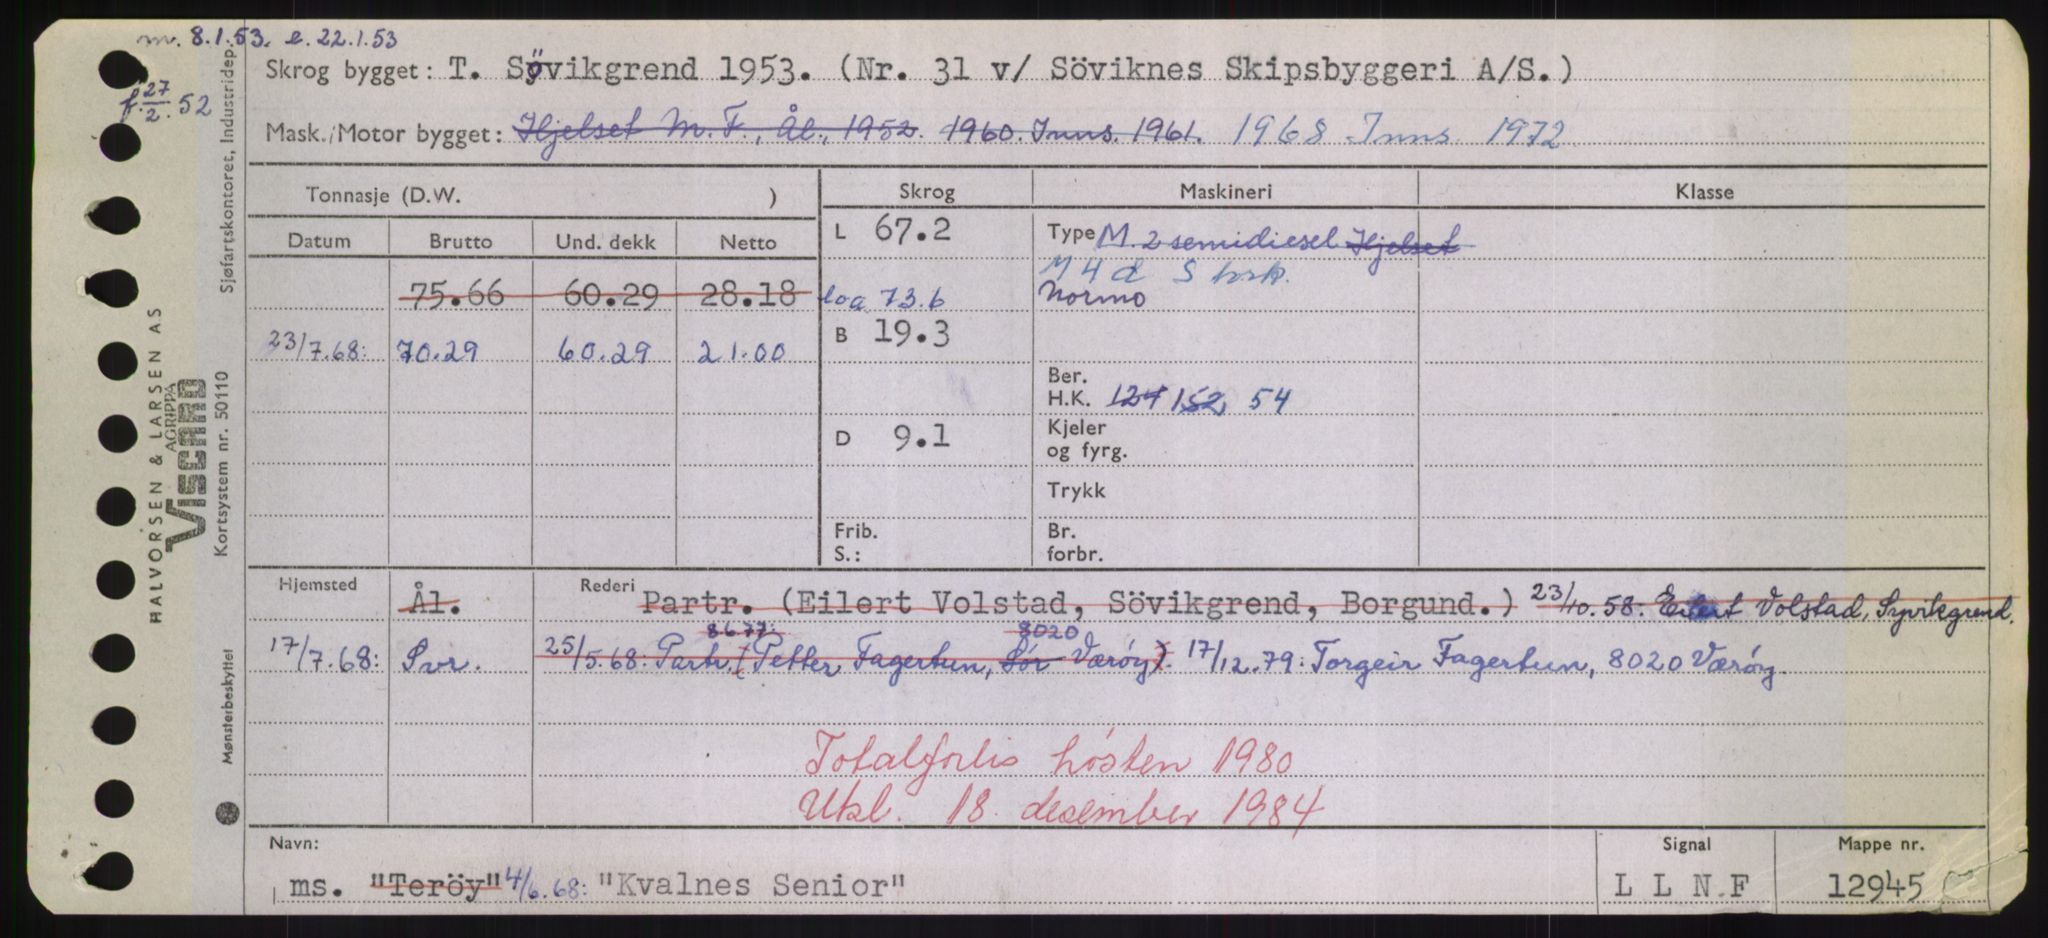 m. 8.1.53. e. 22.1.53
f. 27/2. 52
Skrog bygget: T. Sövikgrend 1953. (Nr. 31 v/ Söviknes Skipsbyggeri A/S.)
Mask./Motor bygget: Hjelset M.F., Ål., 1952. 1960. Inns. 1961. 1968 Inns. 1972
Tonnasje (D.W. ) Skrog Maskineri Klasse
Datum Brutto Und. dekk Netto
L 67.2 Type M. 2 semidiesel Hjelset
M 4 d
75.66 60.29 28.18 loa 73.6 Normo
23/7.68: 70.29 60.29 21.00 B 19.3
Ber.
H.K. 124 152, 54
D 9.1 Kjeler
og fyrg.
Trykk
Frib.
S.: Br.
forbr.
Hjemsted Ål. Rederi Partr. (Eilert Volstad, Sövikgrend, Borgund.) 23/10.58: Eilert Volstad, Syvikgrend.
8677. 8020
17/7.68: Svr. 25/5.68: Partr. (Petter Fagertun, Sør Værøy). 17/12.79: Torgeir Fagertun, 8020 Værøy.
Totalforlis høsten 1980
Utkl. 18. desember 1984
Navn: Signal Mappe nr.
ms. "Teröy" 4/6.68: "Kvalnes Senior" L L N F 12945
Sjøfartskontoret, Industridep.
HALVORSEN & LARSEN A.S
AGRIPPA
VISCAMO
Kortsystem nr. 50110
Mønsterbeskyttet